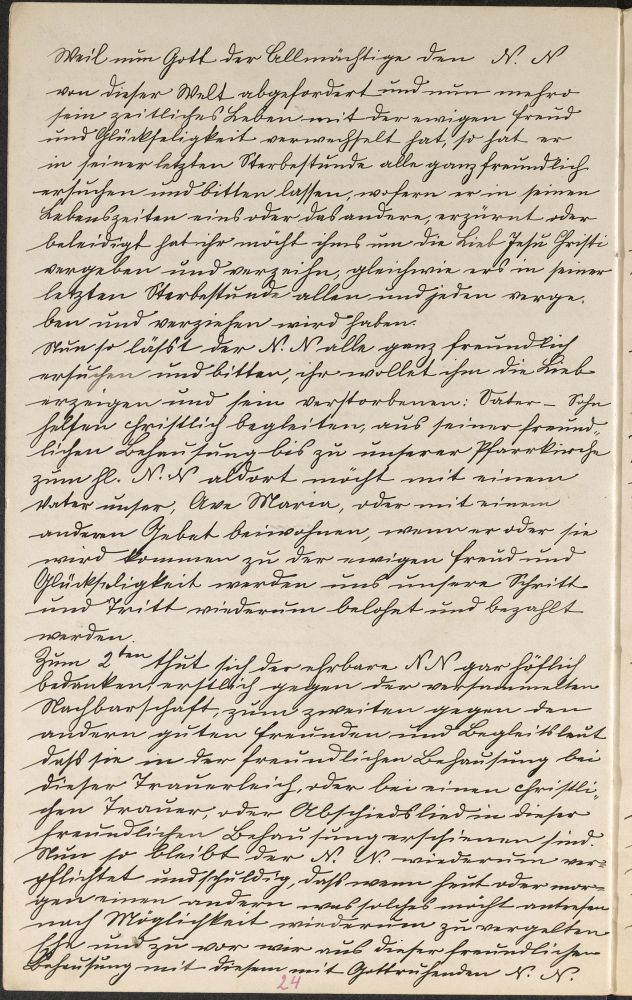 Weil nun Gott der Allmächtige den N. N
von dieser Welt abgefordert und nun mehro
sein zeitliches Leben mit der ewigen Freud
und Glückseligkeit verwechselt hat, so hat er
in seiner letzten Sterbestunde alle ganz freundlich
ersuchen und bitten lassen, wofern er in seinen
Lebenszeiten eins oder das andere, erzürnt oder
beleidigt hat ihr möcht ihms um die Lieb Jesu Christi
vergeben und verzeihn, gleichwie ers in seiner
letzten Sterbestunde allen und jeden verge-
ben und verziehen wird haben.
Nun so lässt der N. N alle ganz freundlich
ersuchen und bitten, ihr wollet ihm die Lieb
erzeigen und sein verstorbenen: Vater – Sohn
helfen christlich begleiten, aus seiner freund-
lichen Behausung bis zu unserer Pfarrkirche
zum hl. N. N aldort möcht mit einem
Vater unser, Ave Maria, oder mit einem
anderen Gebet beiwohnen, wenn er oder sie
wird kommen zu der ewigen Freud und
Glückseligkeit werden uns unsere Schritt
und Tritt wiederum belohnt und bezahlt
werden.
Zum 2ten thut sich der ehrbare N N gar höflich
bedanken, erstlich gegen der versammelten
Nachbarschaft, zum zweiten gegen den
andern guten Freunden und Begleitsleut
dass sie in der freundlichen Behausung bei
dieser Trauerleich, oder bei einen christli-
chen Trauer, oder Abschiedslied in dieser
freundlichen Behausung erschienen sind.
Nun so bleibt der N. N. wiederum ver-
pflichtet und schuldig, dass wenn heut oder mor-
gen einen andern was solches möcht antrefen
nach Möglichkeit wiederum zu vergelten
ehe und zu vor wir aus dieser freundlichen
Behausung mit diesem mit Gottruhenden N. N.
24